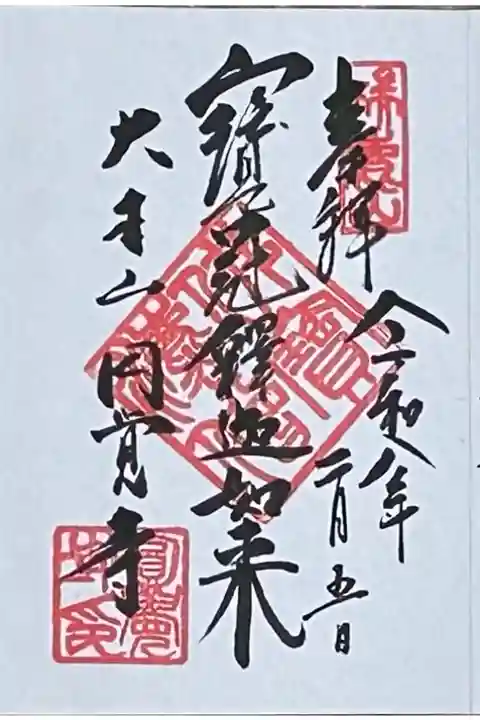 奉拝
令和八年
二月五日
寶冠釋迦如来
大本山
円覚寺